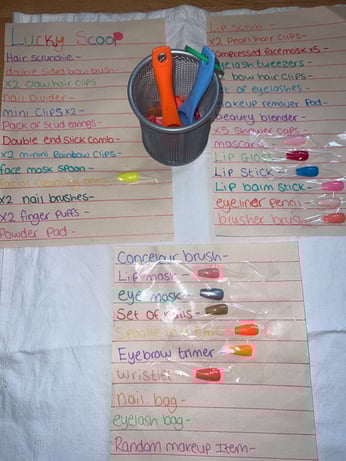 Lucky Scoop
Hair scrunchie -
double sided bow brush -
x2 Claw hair clips
nail Divider -
mini Clips x2 -
Pack of Stud earings -
Double end Slick Comb -
x2 minni Rainbow Clips -
face mask spoon -
facial
x2 nail brushes -
x2 finger puffs -
Powder Pad -
Lip Scrub -
x2 Pearl hair Clips -
compressed facemask x5 -
eyelash tweezers -
bow hair Clips -
of eyelashes -
makeup remover Pad -
beauty blender -
x5 Shower caps -
mascara
Lip Gloss
Lip Stick -
Lip balm Stick -
eyeliner pencil
blusher brush
Concelour brush -
Lip mask -
eye mask -
Set of nails -
Spoolie
Eyebrow trimer -
Wristlet -
nail bag -
eyelash bag -
Random makeup Item -